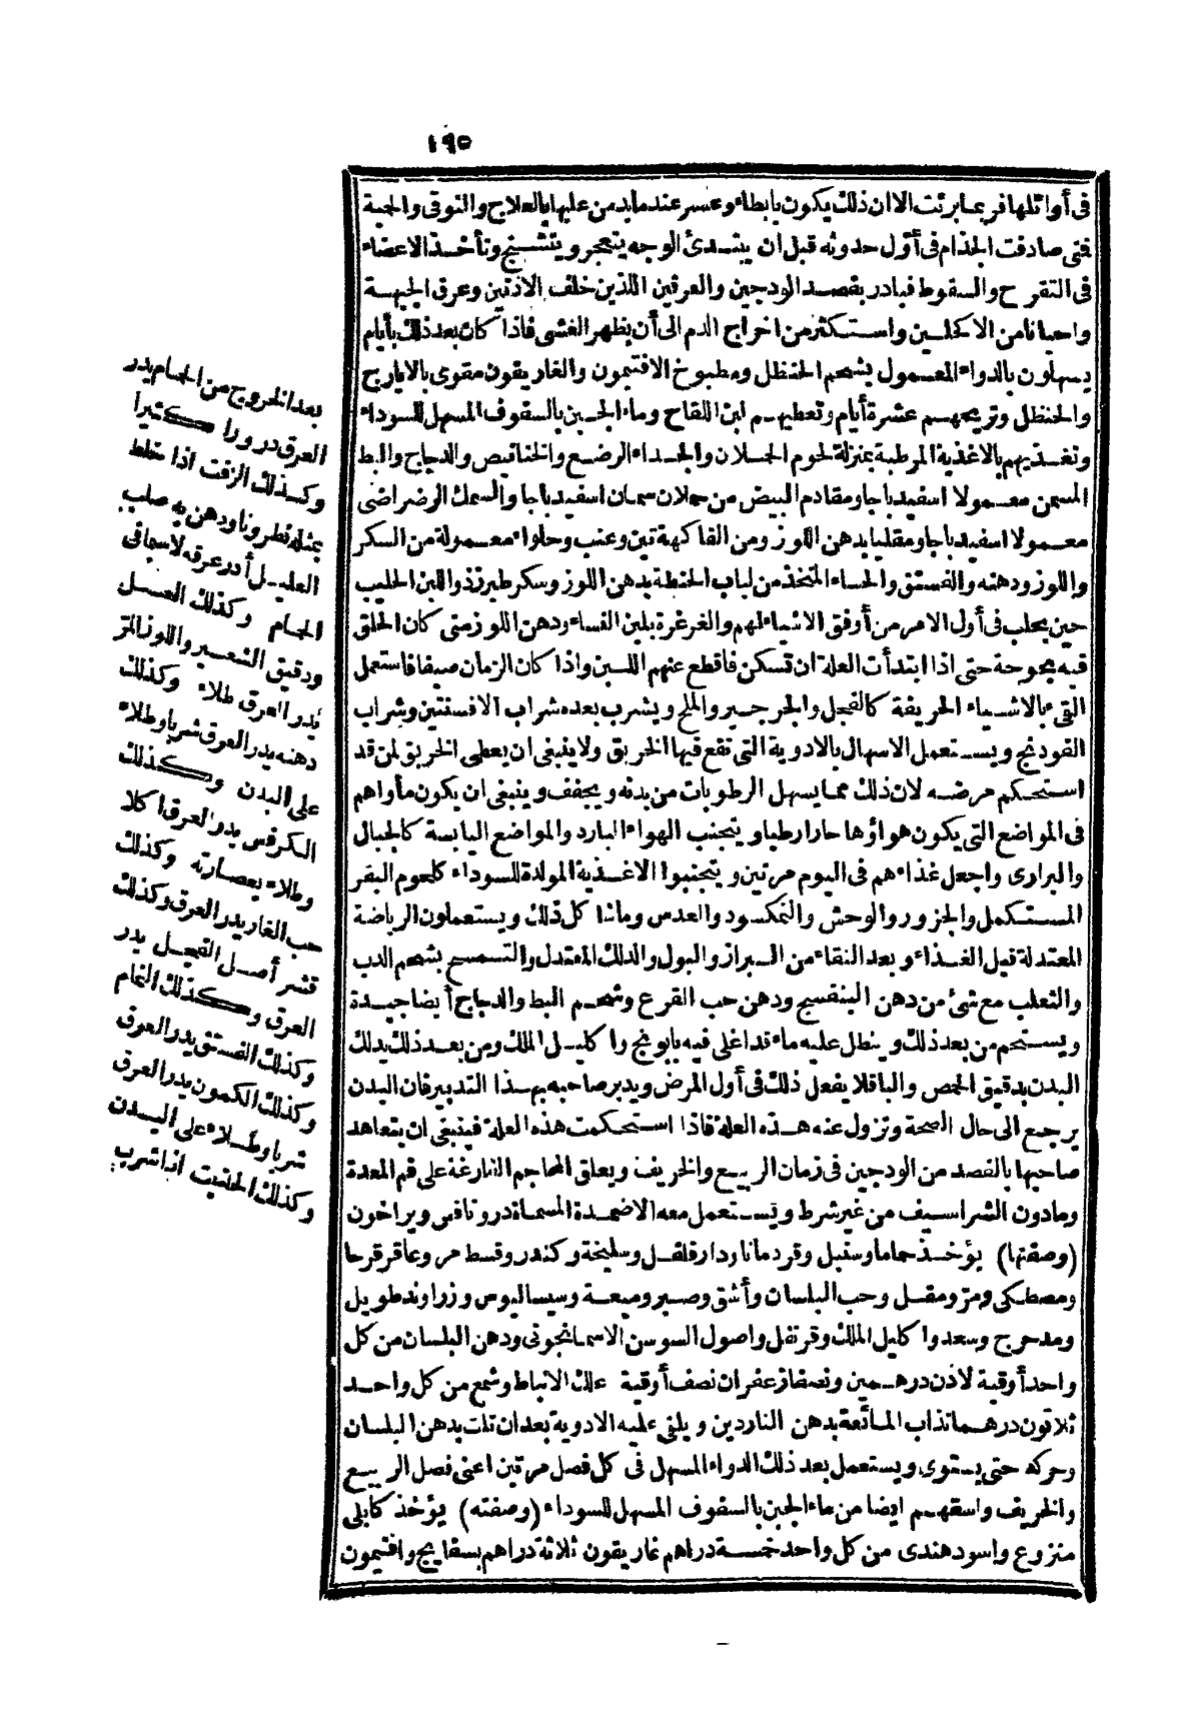 ١٩٥
فى أوائلها فربما برئت الا ان ذلك يكون بابطاء وعسر عند ما يدمن عليها بالعلاج والتوقى والحمية
فتى صادفت الجذام فى أول حدوثه قبل ان يبتدئ الوجه يتعجر ويتشنج وتأخذ الاعضاء
فى التقرح والسقوط فبادر بفصد الودجين والعرقين اللذين خلف الاذنين وعرق الجبهة
واحيانا من الاكحلين واستكثر من اخراج الدم الى أن يظهر الغشى فاذا كان بعد ذلك بأيام
يسهلون بالدواء المعمول بشحم الحنظل ومطبوخ الافتيمون والغاريقون مقوى بالايارج
والحنظل وتريحهم عشرة أيام وتعطيهم لبن اللقاح وماء الجبن بالسفوف المسهل للسوداء
وتغذيهم بالاغذية المرطبة بمنزلة لحوم الحملان والجداء الرضع والخنانيص والدجاج والبط
المسمن معمولا اسفيدباجا ومقادم البيض من حملان سمان اسفيدباجا والسمك الرضراضى
معمولا اسفيدباجا ومقليا بدهن اللوز ومن الفاكهة تين وعنب وحلواء معمولة من السكر
واللوز ودهنه والفستق والحساء المتخذ من لباب الحنطة بدهن اللوز وسكر طبرزذ واللبن الحليب
حين يحلب فى أول الامر من أوفق الاشياء لهم والغرغرة بلبن النساء ودهن اللوز متى كان الحلق
فيه بحوحة حتى اذا ابتدأت العلة ان تسكن فاقطع عنهم اللبن واذا كان الزمان صيفا فاستعمل
القىء بالاشياء الحريفة كالفجل والجرجير والملح ويشرب بعده شراب الافسنتين وشراب
الفودنج ويستعمل الاسهال بالادوية التى تقع فيها الخربق ولا ينبغى ان يعطى الخربق لمن قد
استحكم مرضه لان ذلك مما يسهل الرطوبات من بدنه ويجفف وينبغى ان يكون مأواهم
فى المواضع التى يكون هواؤها حارا رطبا ويتجنب الهواء البارد والمواضع اليابسة كالجبال
والبرارى واجعل غذاءهم فى اليوم مرتين ويتجنبوا الاغذية المولدة للسوداء كلحوم البقر
المستكمل والجزور والوحش والنمكسود والعدس وما شاكل ذلك ويستعملون الرياضة
المعتدلة قبل الغذاء وبعد النقاء من البراز والبول والدلك المعتدل والتمسح بشحم الدب
والثعلب مع شئ من دهن البنفسج ودهن حب القرع وشحم البط والدجاج أيضا جيدة
ويستحم من بعد ذلك وينطل عليه ماء قد اغلى فيه بابونج واكليل الملك ومن بعد ذلك يدلك
البدن بدقيق الحمص والباقلا يفعل ذلك فى أول المرض ويدبر صاحبه بهذا التدبير فان البدن
يرجع الى حال الصحة وتزول عنه هذه العلة فاذا استحكمت هذه العلة فينبغى ان يتعاهد
صاحبها بالفصد من الودجين فى زمان الربيع والخريف ويعلق المحاجم الفارغة على فم المعدة
ومادون الشراسيف من غير شرط ويستعمل معه الاضمدة المسماة درونافس وبراخون
(وصفتها) يؤخذ حماما وسنبل وقردمانا ودارفلفل وسليخة وكندر وقسط مر وعاقرقرحا
ومصطكى ومر ومقل وحب البلسان وأشق وصبر وميعة وسيساليوس وزراوند طويل
ومدحرج وسعد واكليل الملك وقرنفل واصول السوسن الاسمانجونى ودهن البلسان من كل
واحد أوقية لاذن درهمين ونصف زعفران نصف أوقية علك الانباط وشمع من كل واحد
ثلاثون درهما تذاب المائعة بدهن الناردين ويلقى عليه الادوية بعد ان تلت بدهن البلسان
وحركه حتى يستوى ويستعمل بعد ذلك الدواء المسهل فى كل فصل مرتين اعنى فصل الربيع
والخريف واسقهم ايضا من ماء الجبن بالسفوف المسهل للسوداء (وصفته) يؤخذ كابلى
منزوع واسود هندى من كل واحد خمسة دراهم غاريقون ثلاثة دراهم بسفايج وافتيمون
بعد الخروج من الحمام يدر
العرق درورا كثيرا
وكذلك الزفت اذا خلط
بمثله نطرونا ودهن به صلب
العليل أدر عرقه لا سيما فى
الحمام وكذلك العسل
ودقيق الشعير واللوز المر
يدر العرق طلاء وكذلك
دهنه يدر العرق شربا وطلاء
على البدن وكذلك
الكرفس يدر العرق اكلا
وطلاء بعصارته وكذلك
حب الغار يدر العرق وكذلك
قشر أصل الفجل يدر
العرق وكذلك النمام
وكذلك الفستق يدر العرق
وكذلك الكمون يدر العرق
شربا وطلاء على البدن
وكذلك الحلتيت اذا شرب